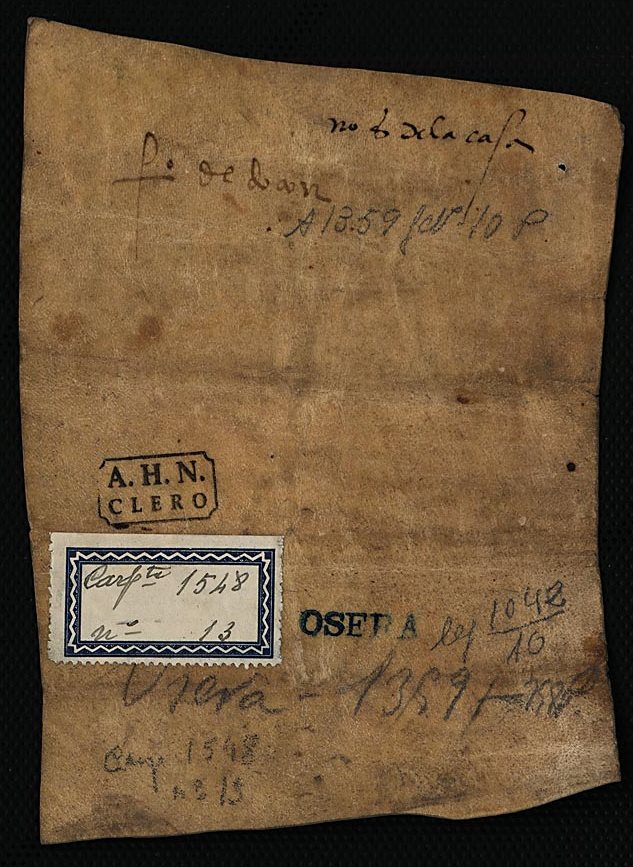 no t dela casa
fo. de doan
A 1359 10 P
A. H. N.
CLERO
Carpta 1548
nº 13
OSERA
leg 1048
10
Osera - 1359
Carp 1548
nº 13